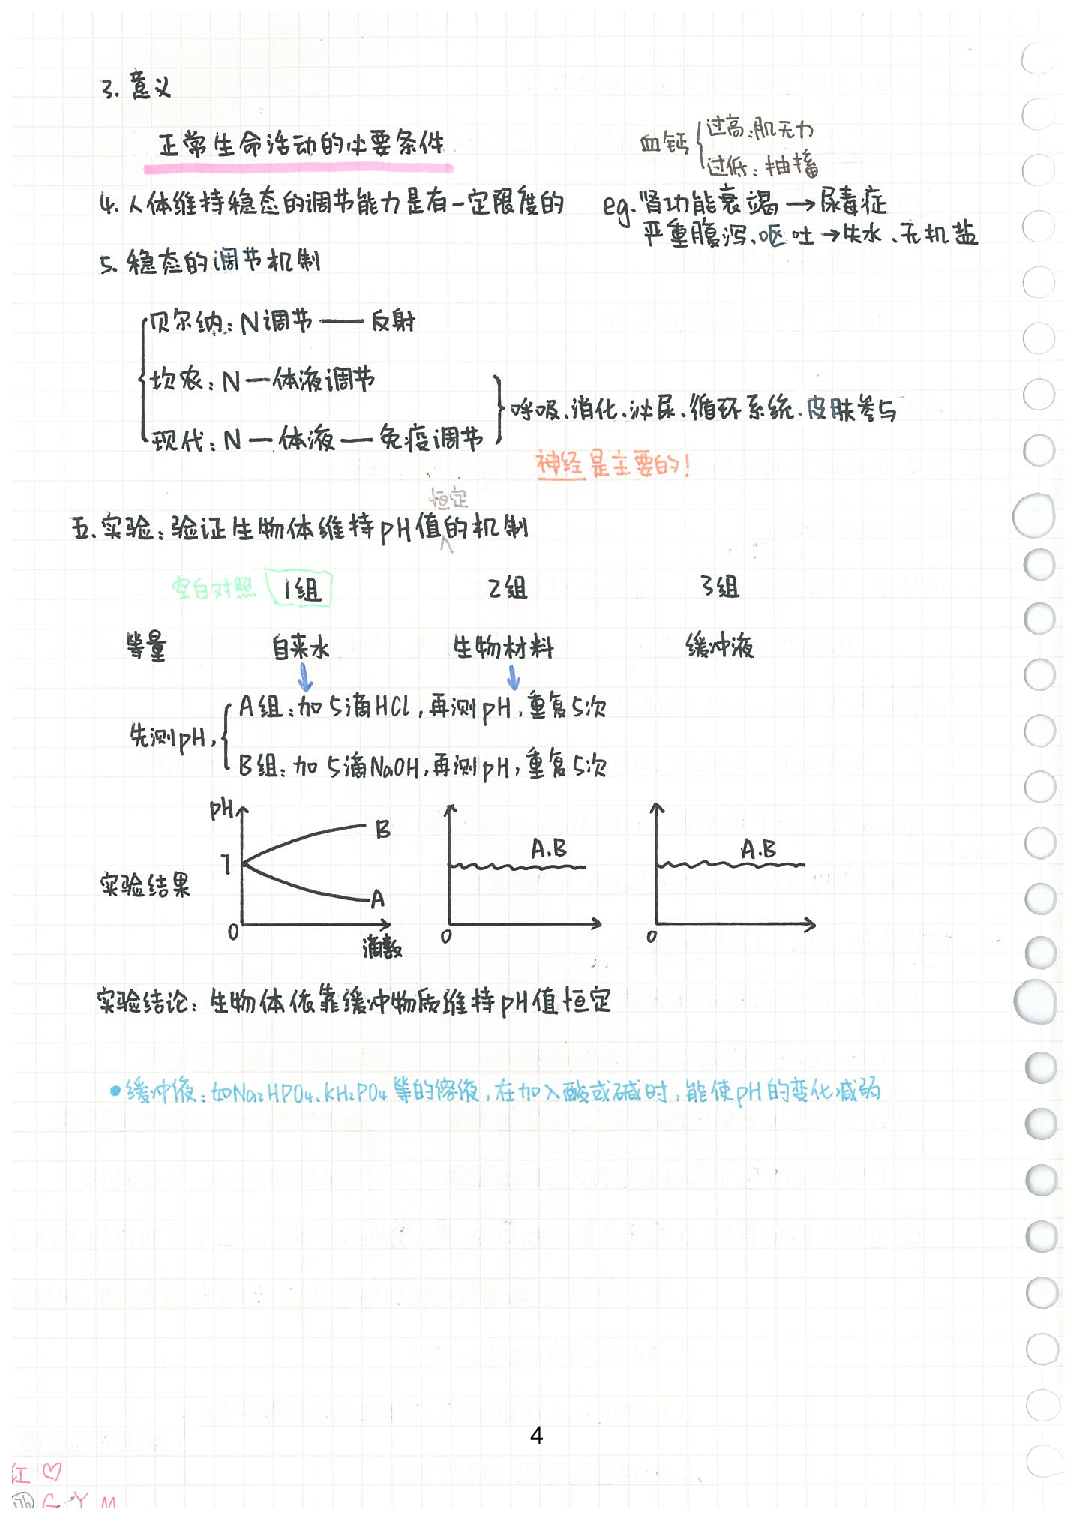 3. 意义
正常生命活动的必要条件
血钙 { 过高:肌无力
过低:抽搐
4. 人体维持稳态的调节能力是有一定限度的 eg. 肾功能衰竭→尿毒症
严重腹泻、呕吐→失水、无机盐
5. 稳态的调节机制
贝尔纳:N调节——反射
坎农:N—体液调节
呼吸、消化、泌尿、循环系统、皮肤参与
现代:N—体液—免疫调节
神经是主要的!
恒定
五.实验:验证生物体维持pH值的机制
空白对照 1组 2组 3组
等量 自来水 生物材料 缓冲液
A组:加5滴HCl,再测pH,重复5次
先测pH,
B组:加5滴NaOH,再测pH,重复5次
pH
B
A.B A.B
7
实验结果
A
0 0 0
滴数
实验结论:生物体依靠缓冲物质维持pH值恒定
•缓冲液:如Na₂HPO₄、KH₂PO₄等的溶液,在加入酸或碱时,能使pH的变化减弱
4
红♡
G Y M